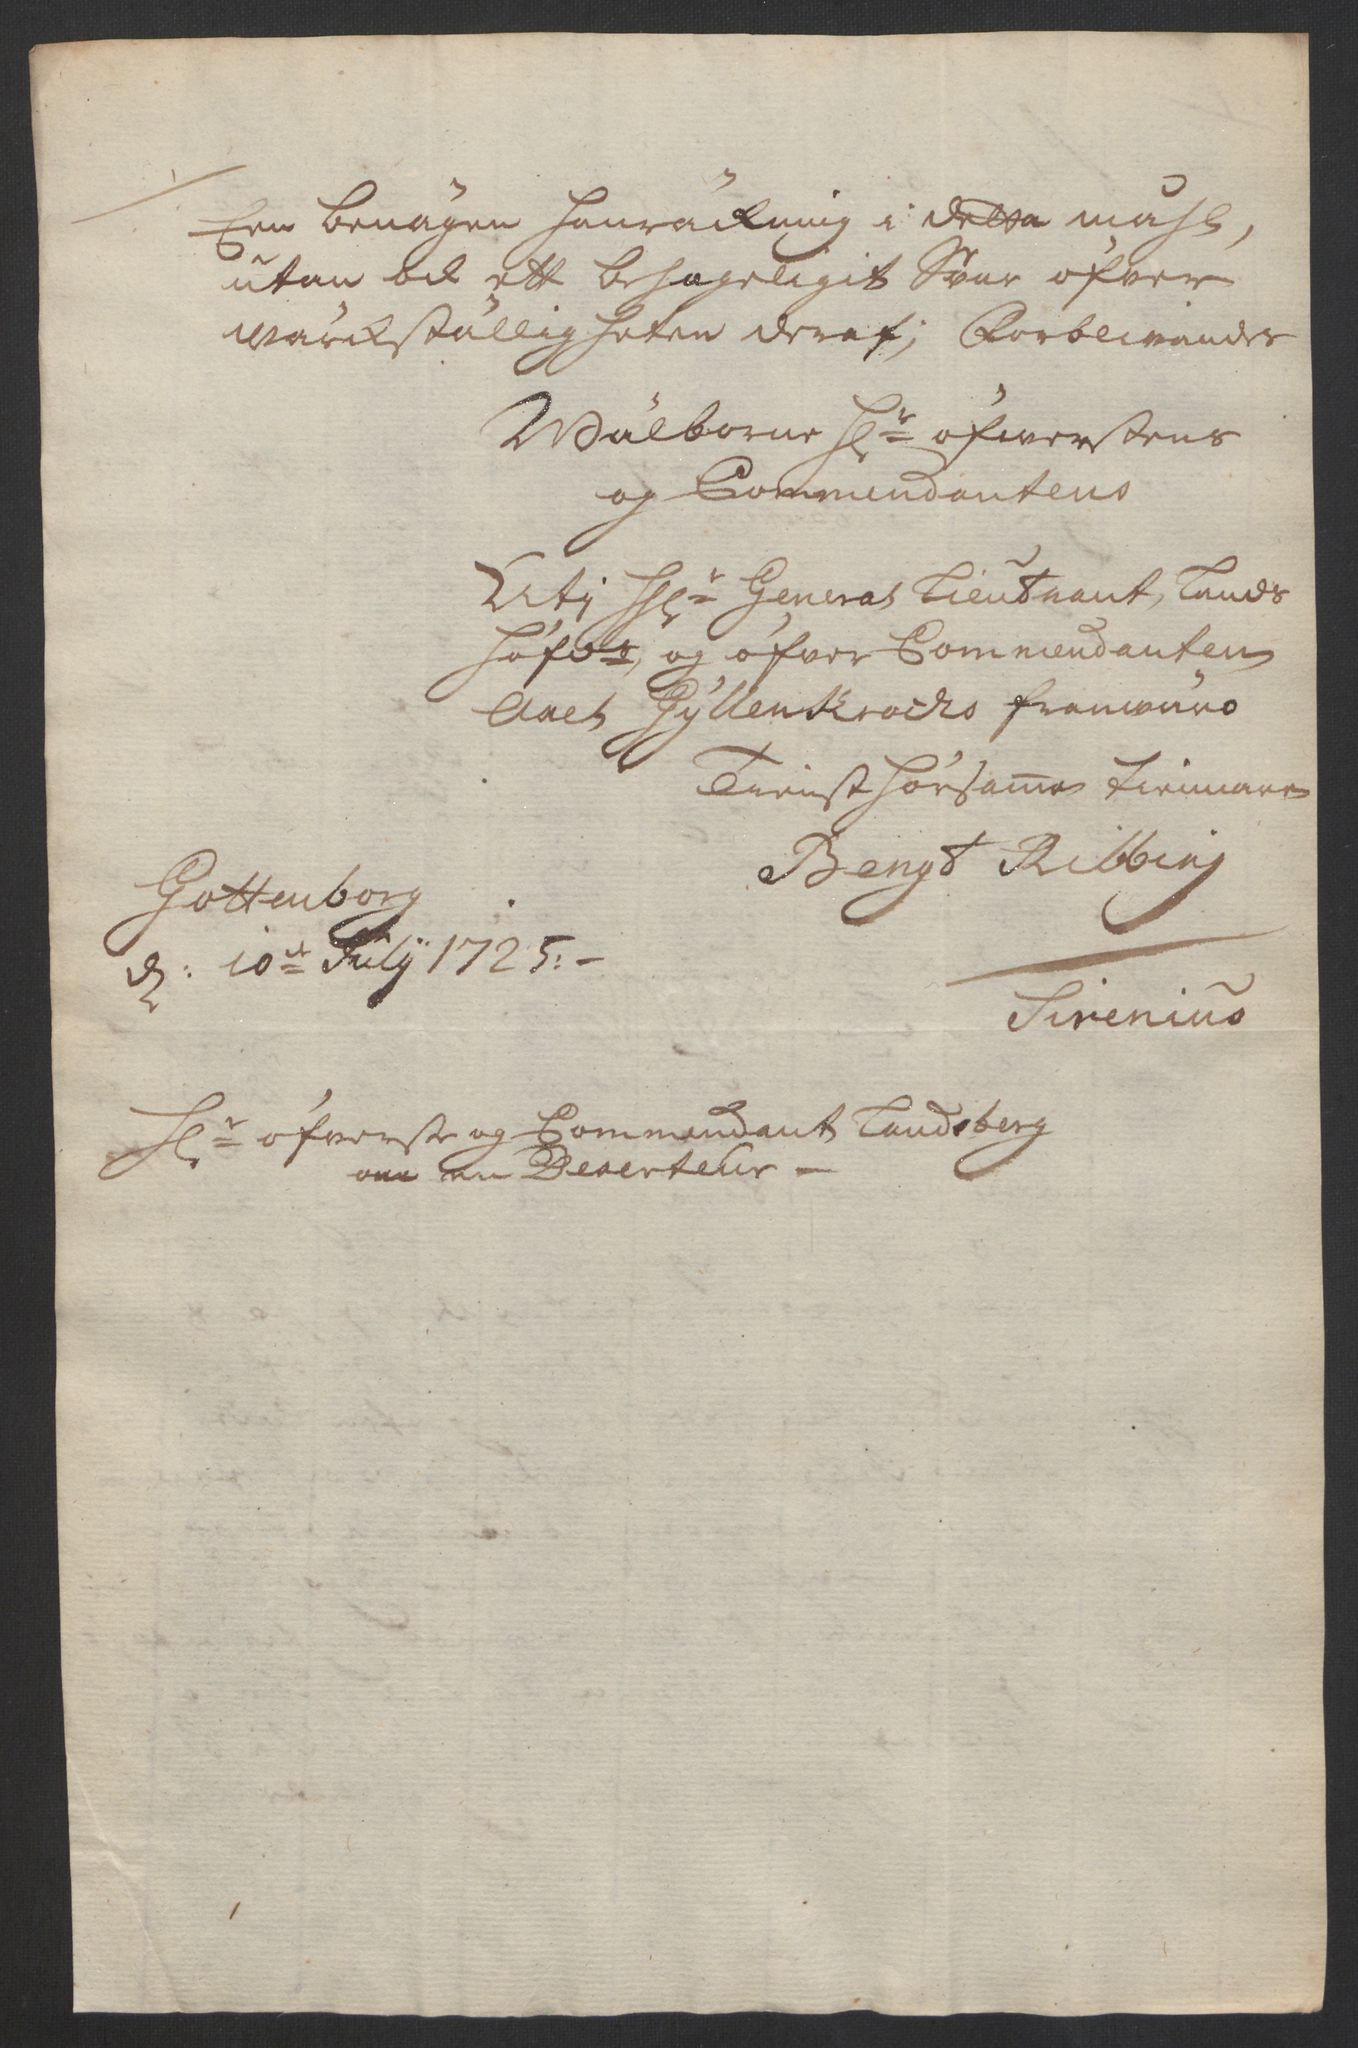 Een benägen hanräckning i detta mahl,
utan och ett behageligit Svar öfver
wärckställigheten deraf; Förblifwandes
Wälborne Hr öfwerstens
og Commendantens
Uti Hr General Lieutnant, Lands
höfd, og öfver Commendanten
Axel Gyllenkrocks franwaro
Tienst hörsamme tienare
Bengt Ribbing
Gottenborg
d: 10 Julij 1725:-
Sirenius
Hr öfverste og Commendant Landsberg
om en Deserteur -